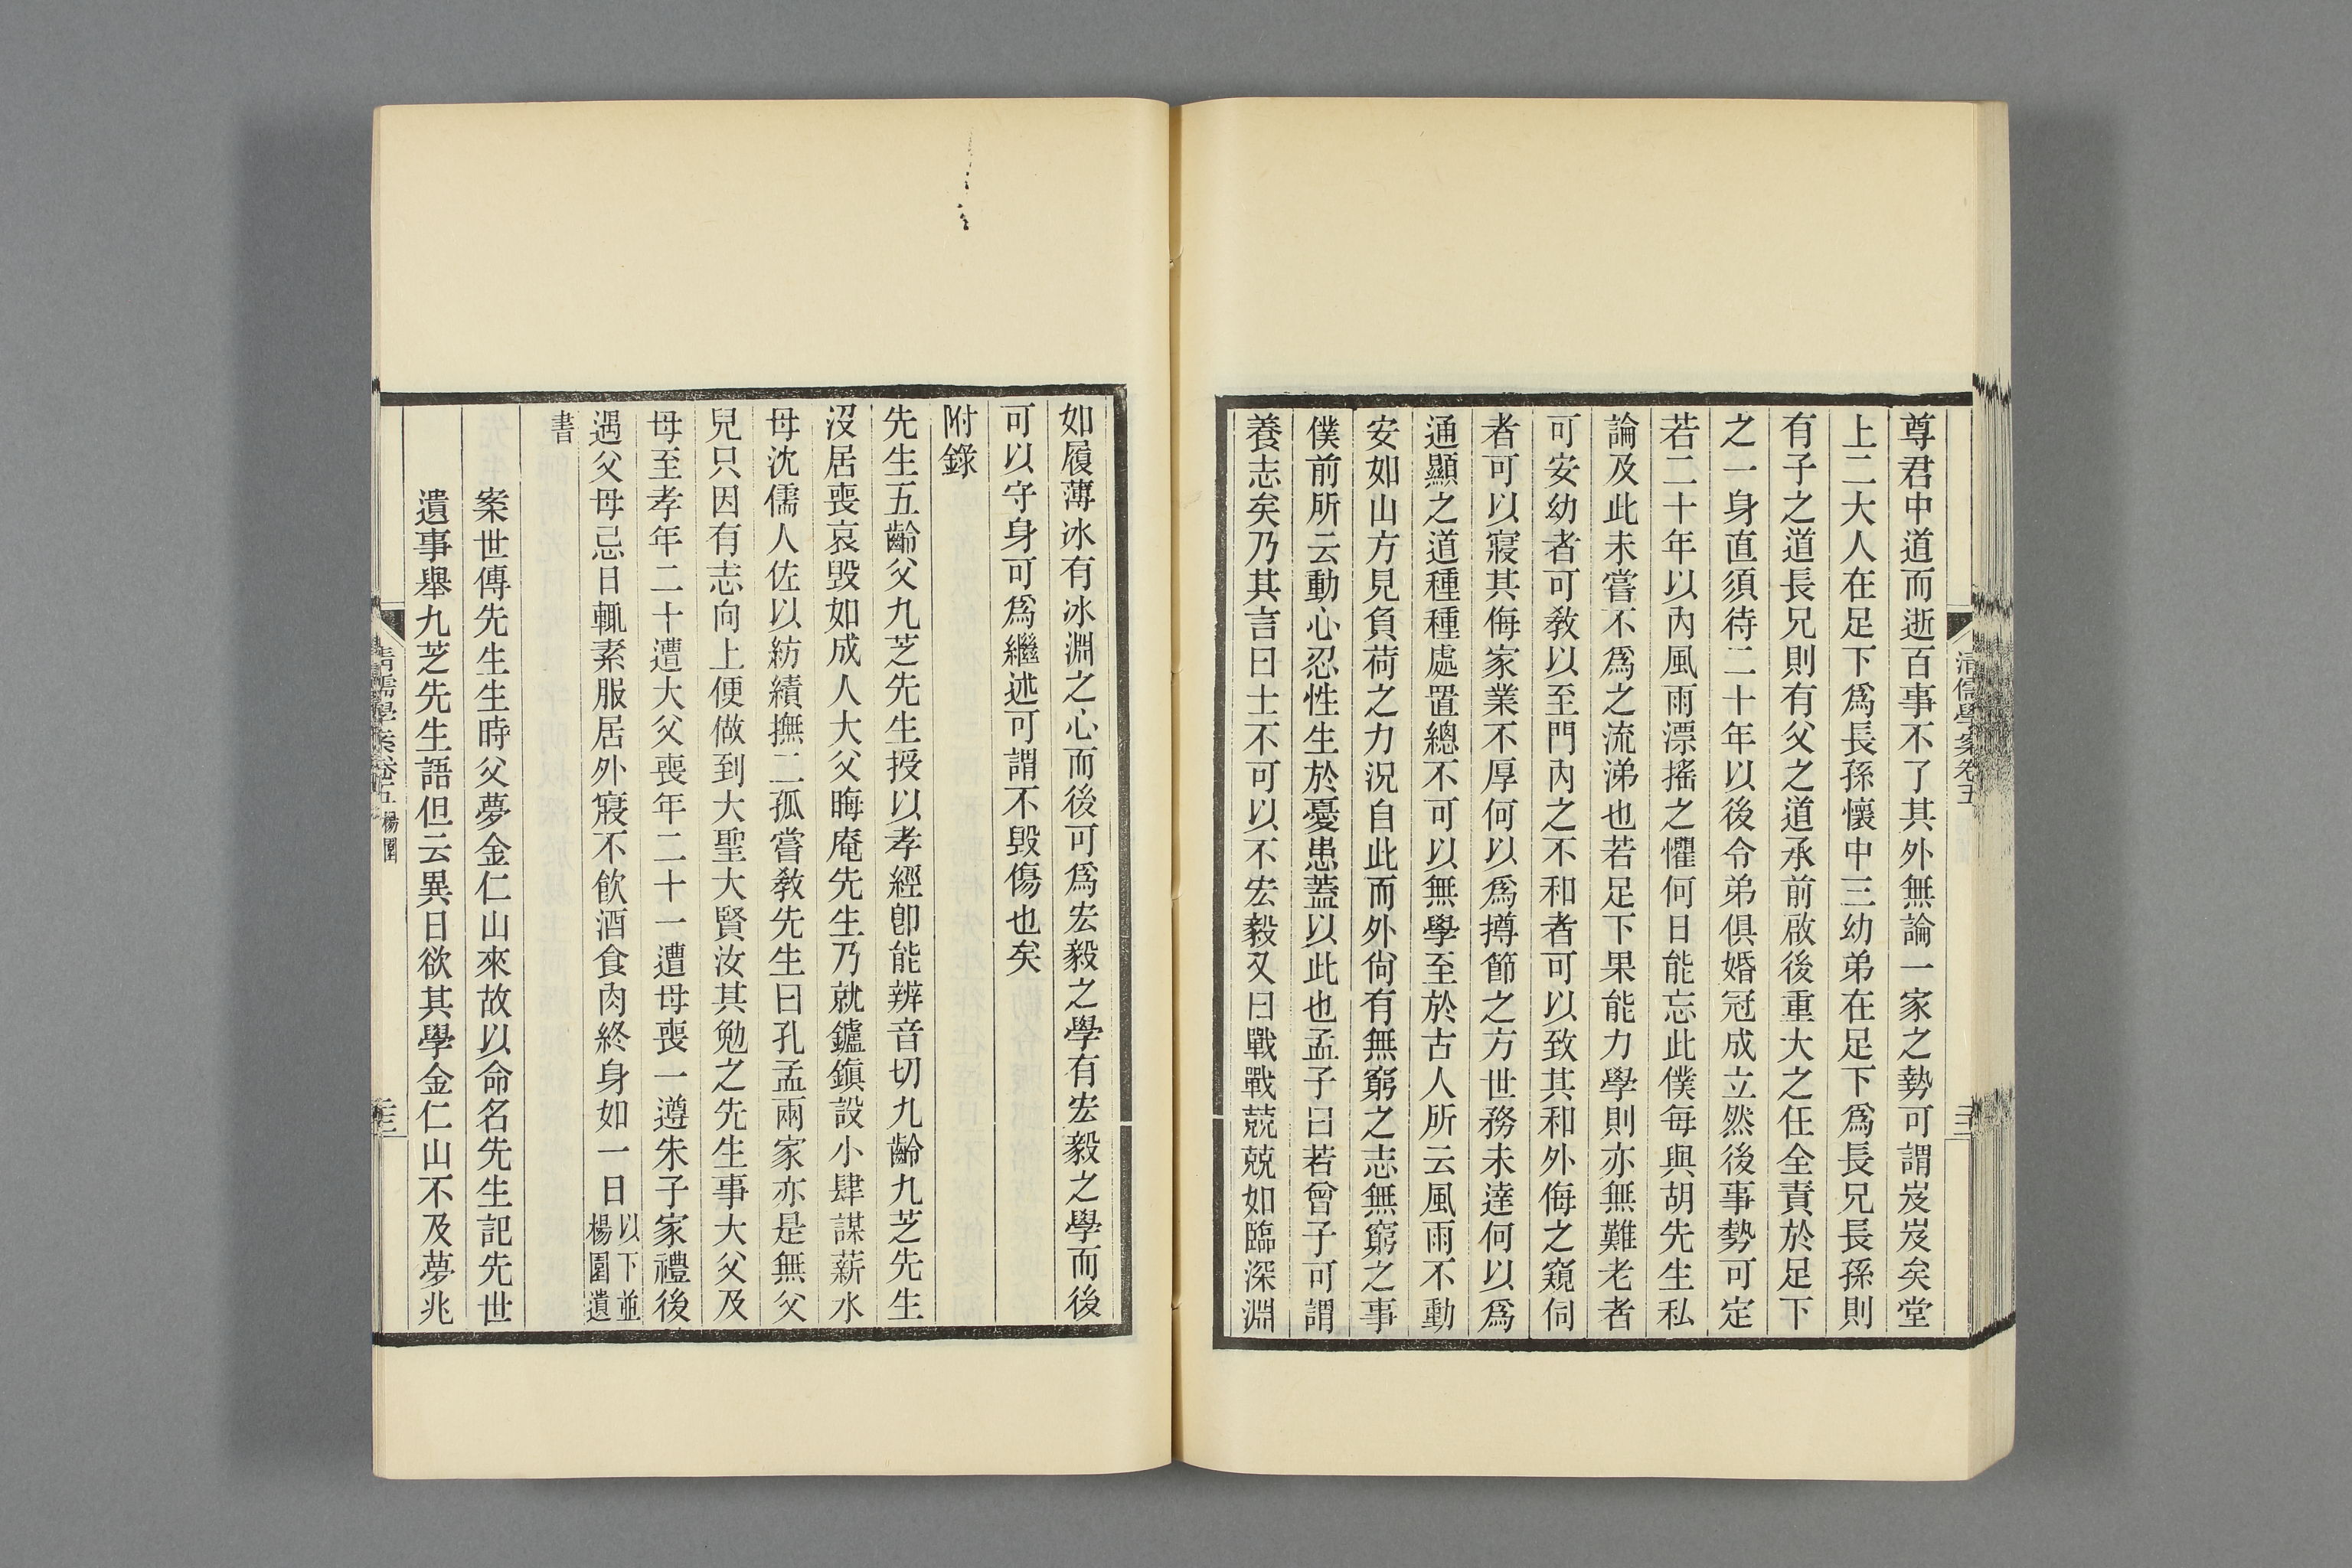 尊君中道而逝百事不了其外無論一家之勢可謂岌岌矣堂
上二大人在足下爲長孫懷中三幼弟在足下爲長兄長孫則
有子之道長兄則有父之道承前啟後重大之任全責於足下
之一身直須待二十年以後令弟俱婚冠成立然後事勢可定
若二十年以內風雨漂搖之懼何日能忘此僕每與胡先生私
論及此未嘗不爲之流涕也若足下果能力學則亦無難老者
可安幼者可敎以至門內之不和者可以致其和外侮之窺伺
者可以寢其侮家業不厚何以爲撙節之方世務未達何以爲
通顯之道種種處置總不可以無學至於古人所云風雨不動
安如山方見負荷之力況自此而外尙有無窮之志無窮之事
僕前所云動心忍性生於憂患蓋以此也孟子曰若曾子可謂
養志矣乃其言曰士不可以不宏毅又曰戰戰兢兢如臨深淵
清儒學案卷五
如履薄冰有冰淵之心而後可爲宏毅之學有宏毅之學而後
可以守身可爲繼述可謂不毀傷也矣
附錄
先生五齡父九芝先生授以孝經卽能辨音切九齡九芝先生
沒居喪哀毀如成人大父晦庵先生乃就鑪鎮設小肆謀薪水
母沈儒人佐以紡績撫二孤嘗敎先生曰孔孟兩家亦是無父
兒只因有志向上便做到大聖大賢汝其勉之先生事大父及
母至孝年二十遭大父喪年二十一遭母喪一遵朱子家禮後
遇父母忌日輒素服居外寢不飮酒食肉終身如一日以下並楊園遺
書
案世傳先生生時父夢金仁山來故以命名先生記先世
遺事舉九芝先生語但云異日欲其學金仁山不及夢兆
清儒學案卷五 楊園